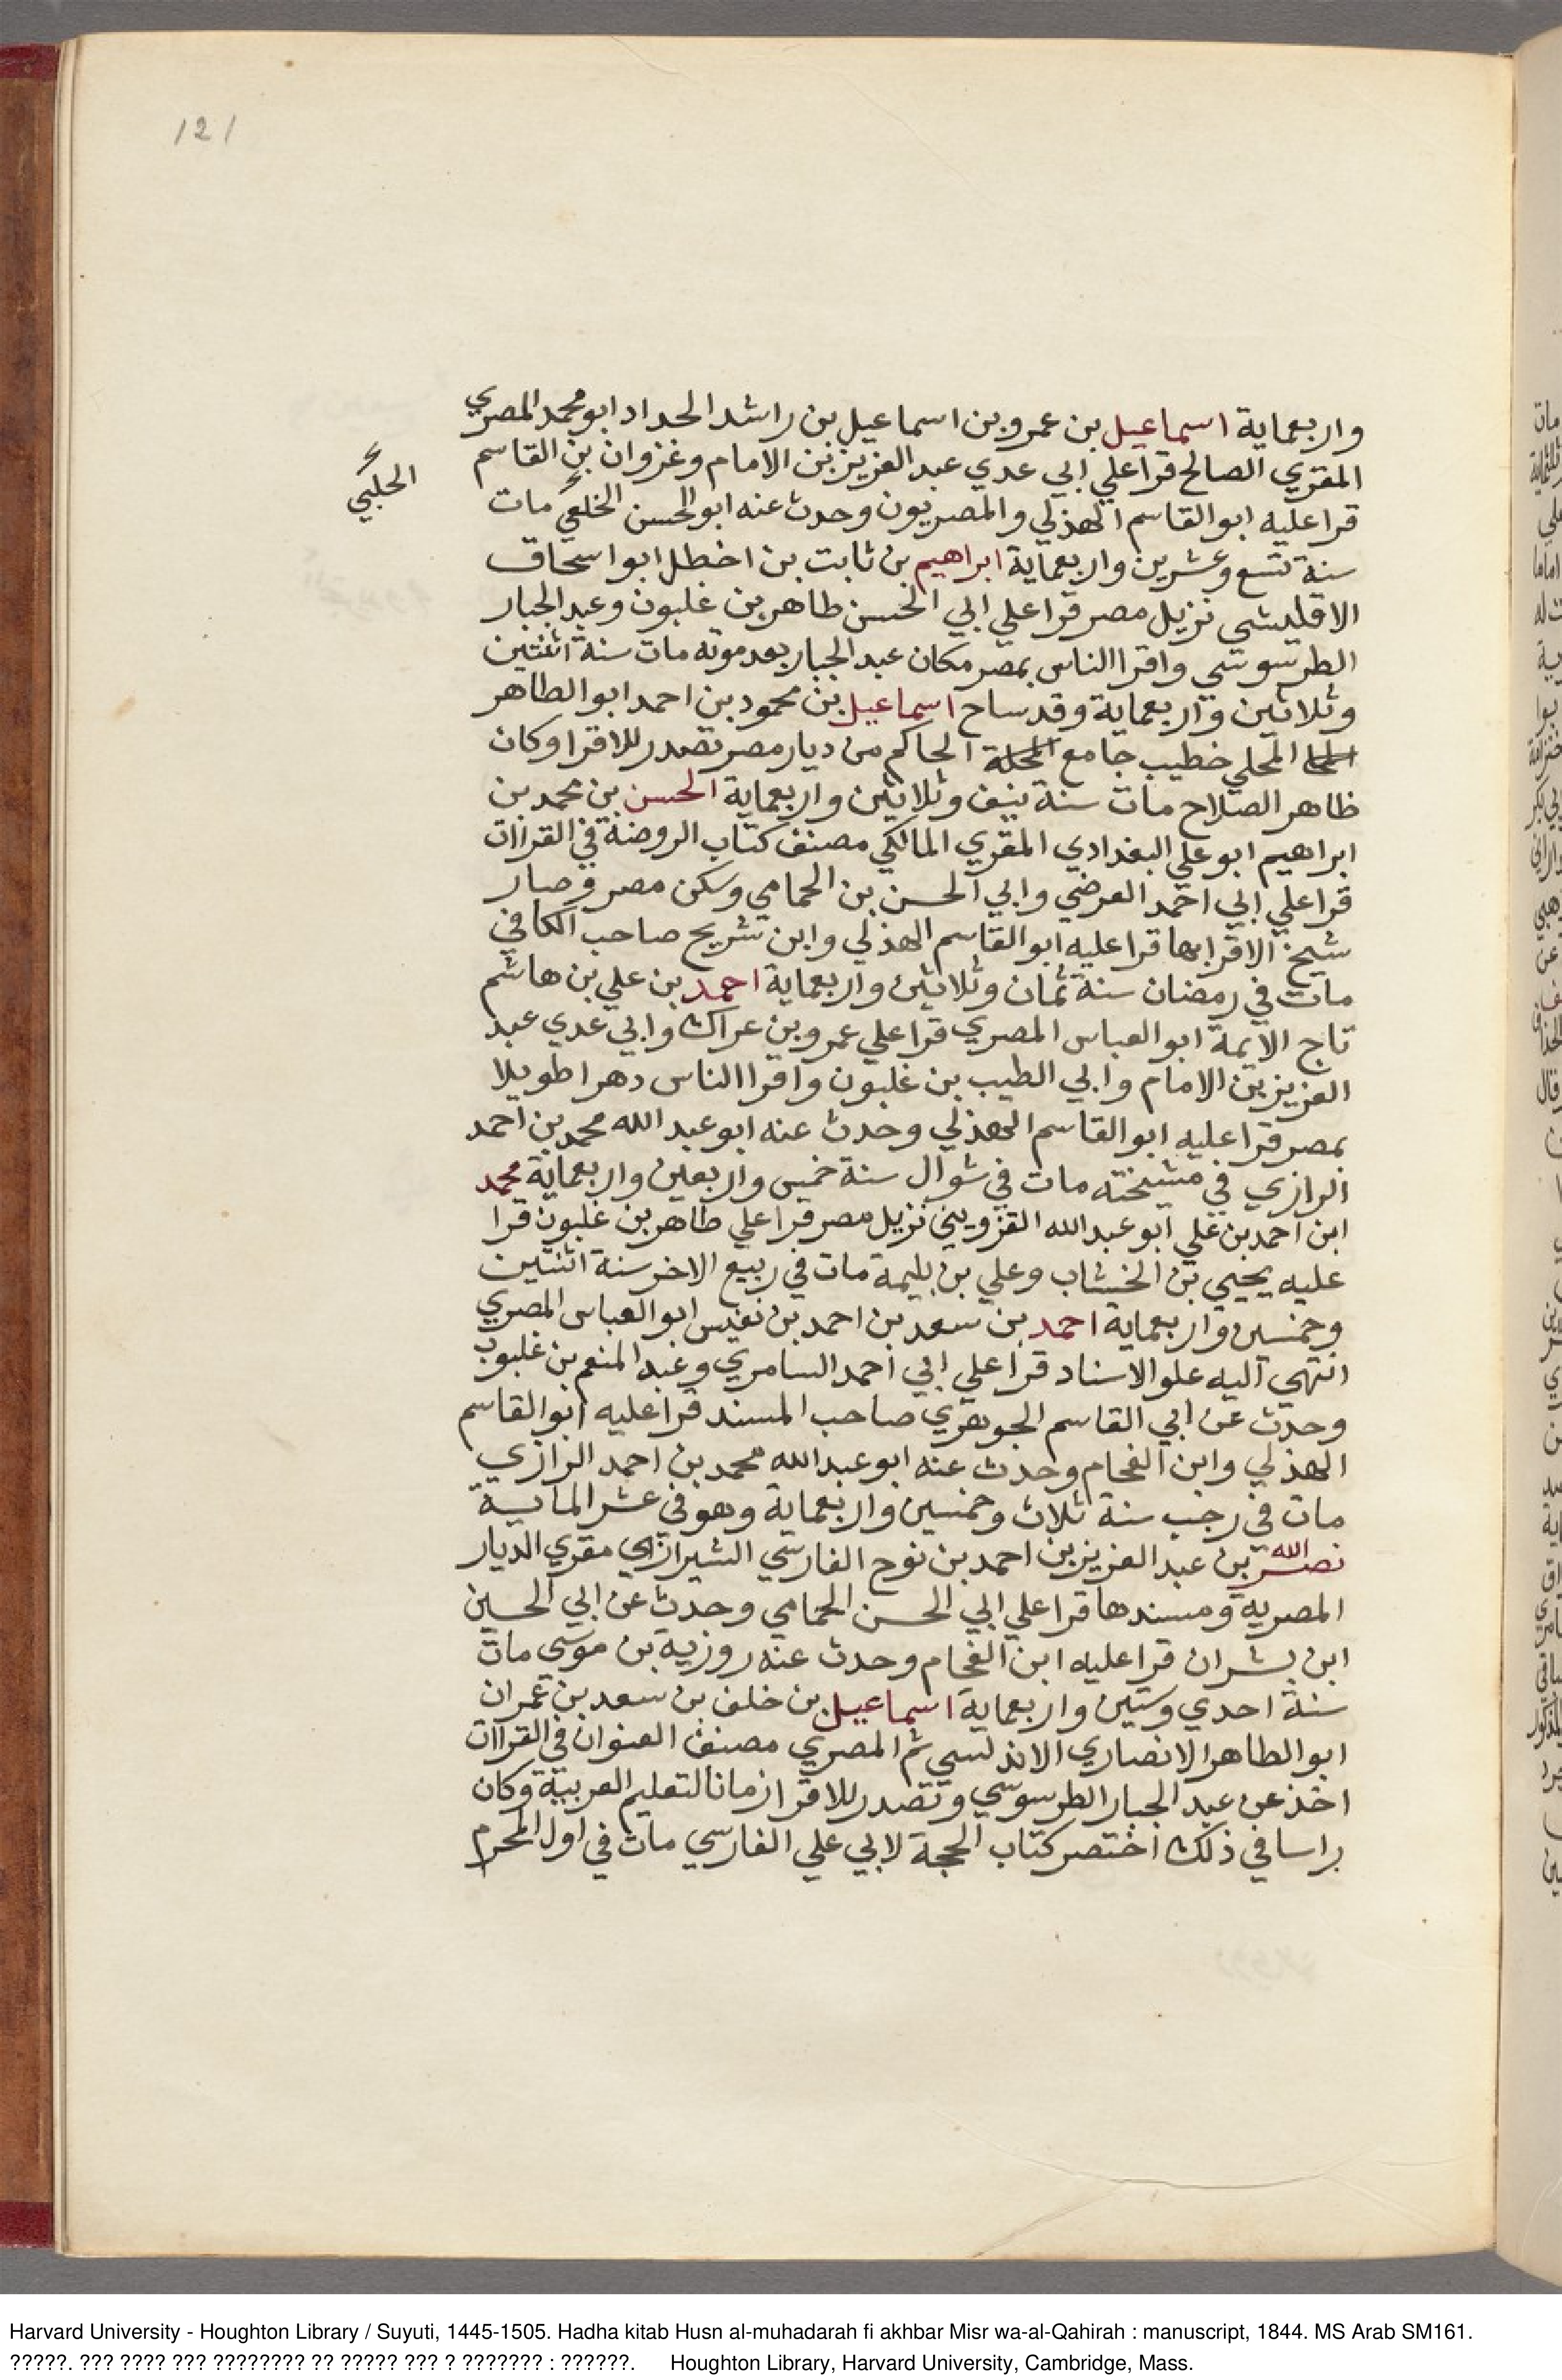 121
واربعماية اسماعيل بن عمرو بن اسماعيل بن راشد الحداد ابو محمد المصري
المقري الصالح قرا علي ابي عدي عبد العزيز بن الامام وغزوان بن القاسم
قرا عليه ابو القاسم الهذلي والمصريون وحدث عنه ابو الحسن الخلعي مات
الحلبي
سنة تسع وعشرين واربعماية ابراهيم بن ثابت بن اخطل ابو اسحاق
الاقليشي نزيل مصر قرا علي ابي الحسن طاهر بن غلبون وعبد الجبار
الطرسوسي واقرا الناس بمصر مكان عبد الجبار بعد موته مات سنة اثنتين
وثلاثين واربعماية وقد ساح اسماعيل بن محمود بن احمد ابو الطاهر
المحلي خطيب جامع الحاكم من ديار مصر تصدر للاقرا وكان
ظاهر الصلاح مات سنة نيف وثلاثين واربعماية الحسن بن محمد بن
ابراهيم ابو علي البغدادي المقري المالكي مصنف كتاب الروضة في القراات
قرا علي ابي احمد الفرضي وابي الحسن بن الحمامي وسكن مصر وصار
شيخ الاقرا بها قرا عليه ابو القاسم الهذلي وابن شريح صاحب الكافي
مات في رمضان سنة ثمان وثلاثين واربعماية احمد بن علي بن هاشم
تاج الايمة ابو العباس المصري قرا علي عمرو بن عراك وابي عدي عبد
العزيز بن الامام وابي الطيب بن غلبون واقرا الناس دهرا طويلا
بمصر قرا عليه ابو القاسم الهذلي وحدث عنه ابو عبد الله محمد بن احمد
الرازي في مشيخته مات في شوال سنة خمس واربعين واربعماية محمد
ابن احمد بن علي ابو عبد الله القزويني نزيل مصر قرا علي طاهر بن غلبون قرا
عليه يحيي بن الخشاب وعلي بن بليمة مات في ربيع الاخر سنة اثنتين
وخمسين واربعماية احمد بن سعد بن احمد بن نفيس ابو العباس المصري
انتهي اليه علو الاسناد قرا علي ابي احمد السامري وعبد المنعم بن غلبون
وحدث عن ابي القاسم الجوهري صاحب المسند قرا عليه ابو القاسم
الهذلي وابن الفحام وحدث عنه ابو عبد الله محمد بن احمد الرازي
مات في رجب سنة ثلاث وخمسين واربعماية وهو في عشر الماية
نصر الله بن عبد العزيز بن احمد بن نوح الفارسي الشيرازي مقري الديار
المصرية ومسندها قرا علي ابي الحسن الحمامي وحدث عن ابي الحسين
ابن بشران قرا عليه ابن الفحام وحدث عنه روزبة بن موسي مات
سنة احدي وستين واربعماية اسماعيل بن خلف بن سعد بن عمران
ابو الطاهر الانصاري الاندلسي ثم المصري مصنف العنوان في القراات
اخذ عن عبد الجبار الطرسوسي وتصدر للاقرا زمانا لتعليم العربية وكان
براسا في ذلك اختصر كتاب الحجة لابي علي الفارسي مات في اول المحرم
Harvard University - Houghton Library / Suyuti, 1445-1505. Hadha kitab Husn al-muhadarah fi akhbar Misr wa-al-Qahirah : manuscript, 1844. MS Arab SM161.
?????. ??? ???? ??? ???????? ?? ????? ??? ? ??????? : ??????. Houghton Library, Harvard University, Cambridge, Mass.